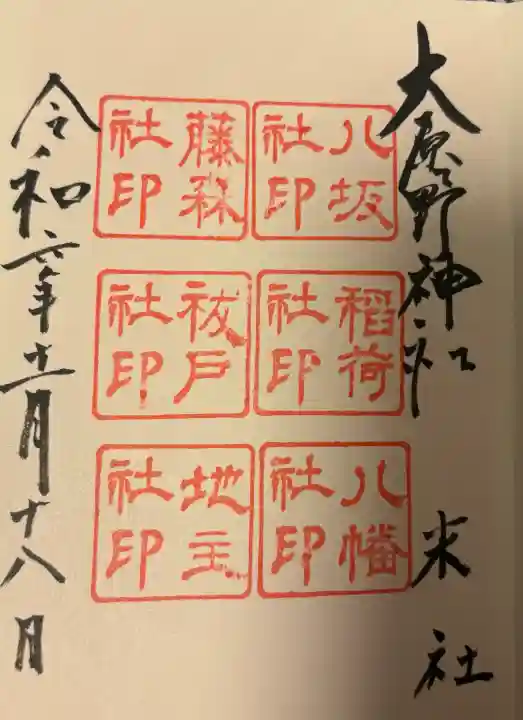 大原野神社
末社
八坂社印
藤森社印
稲荷社印
祓戸社印
八幡社印
地主社印
令和六年十一月十八日